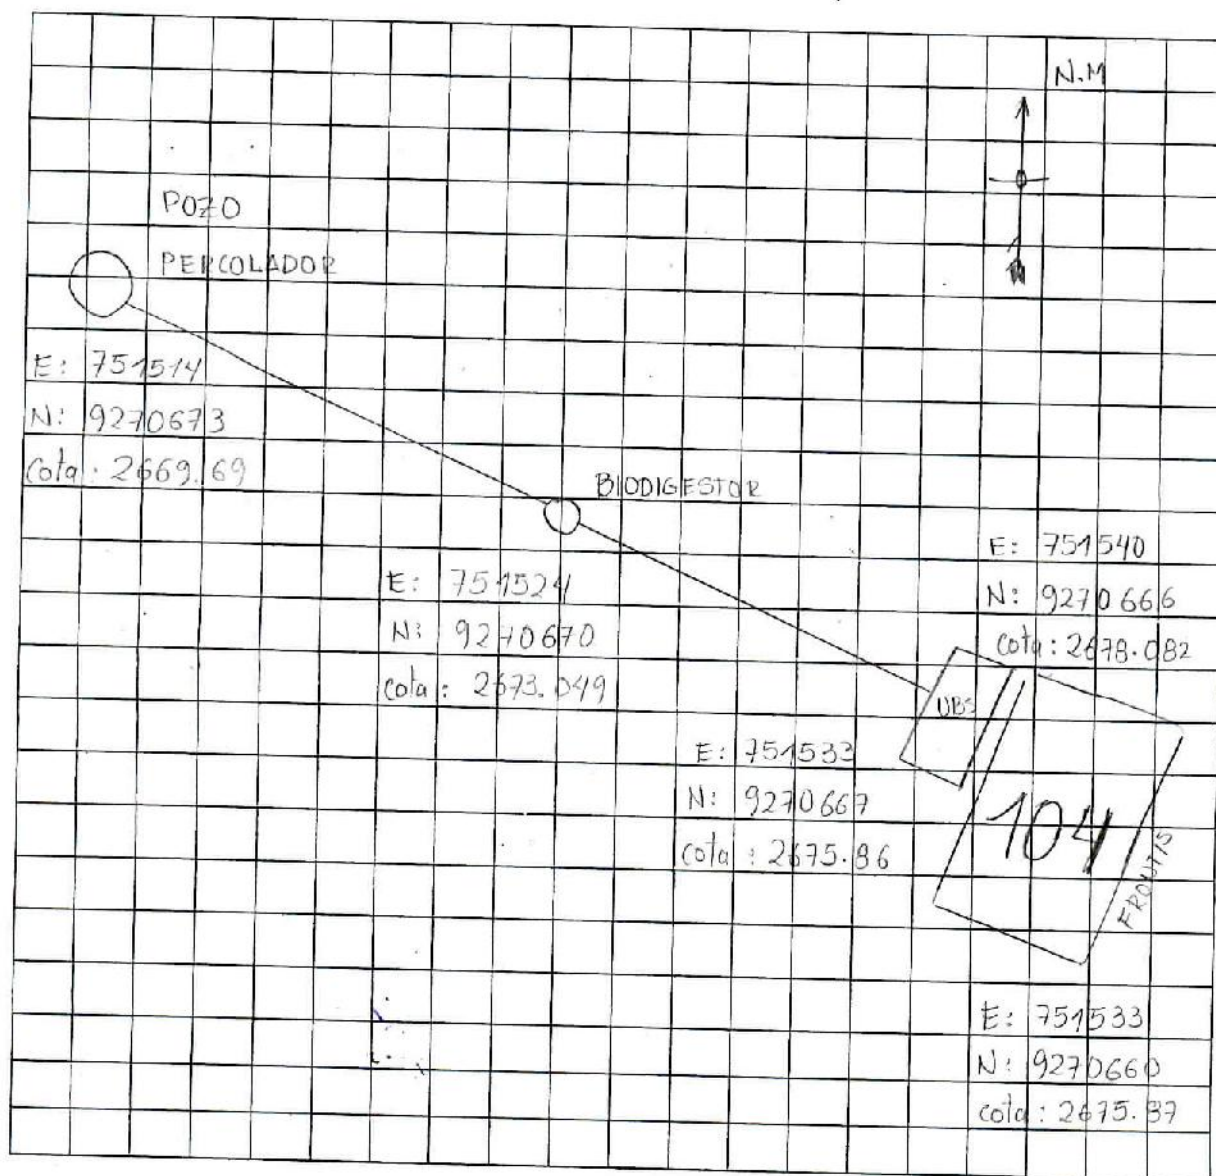 N.M
POZO
PERCOLADOR
E: 751514
N: 9270673
cota: 2669.69
BIODIGESTOR
E: 751524
N: 9270670
cota: 2673.049
E: 751540
N: 9270666
cota: 2678.082
UBS
E: 751533
N: 9270667
cota: 2675.86
104
FRONTIS
E: 751533
N: 9270660
cota: 2675.87